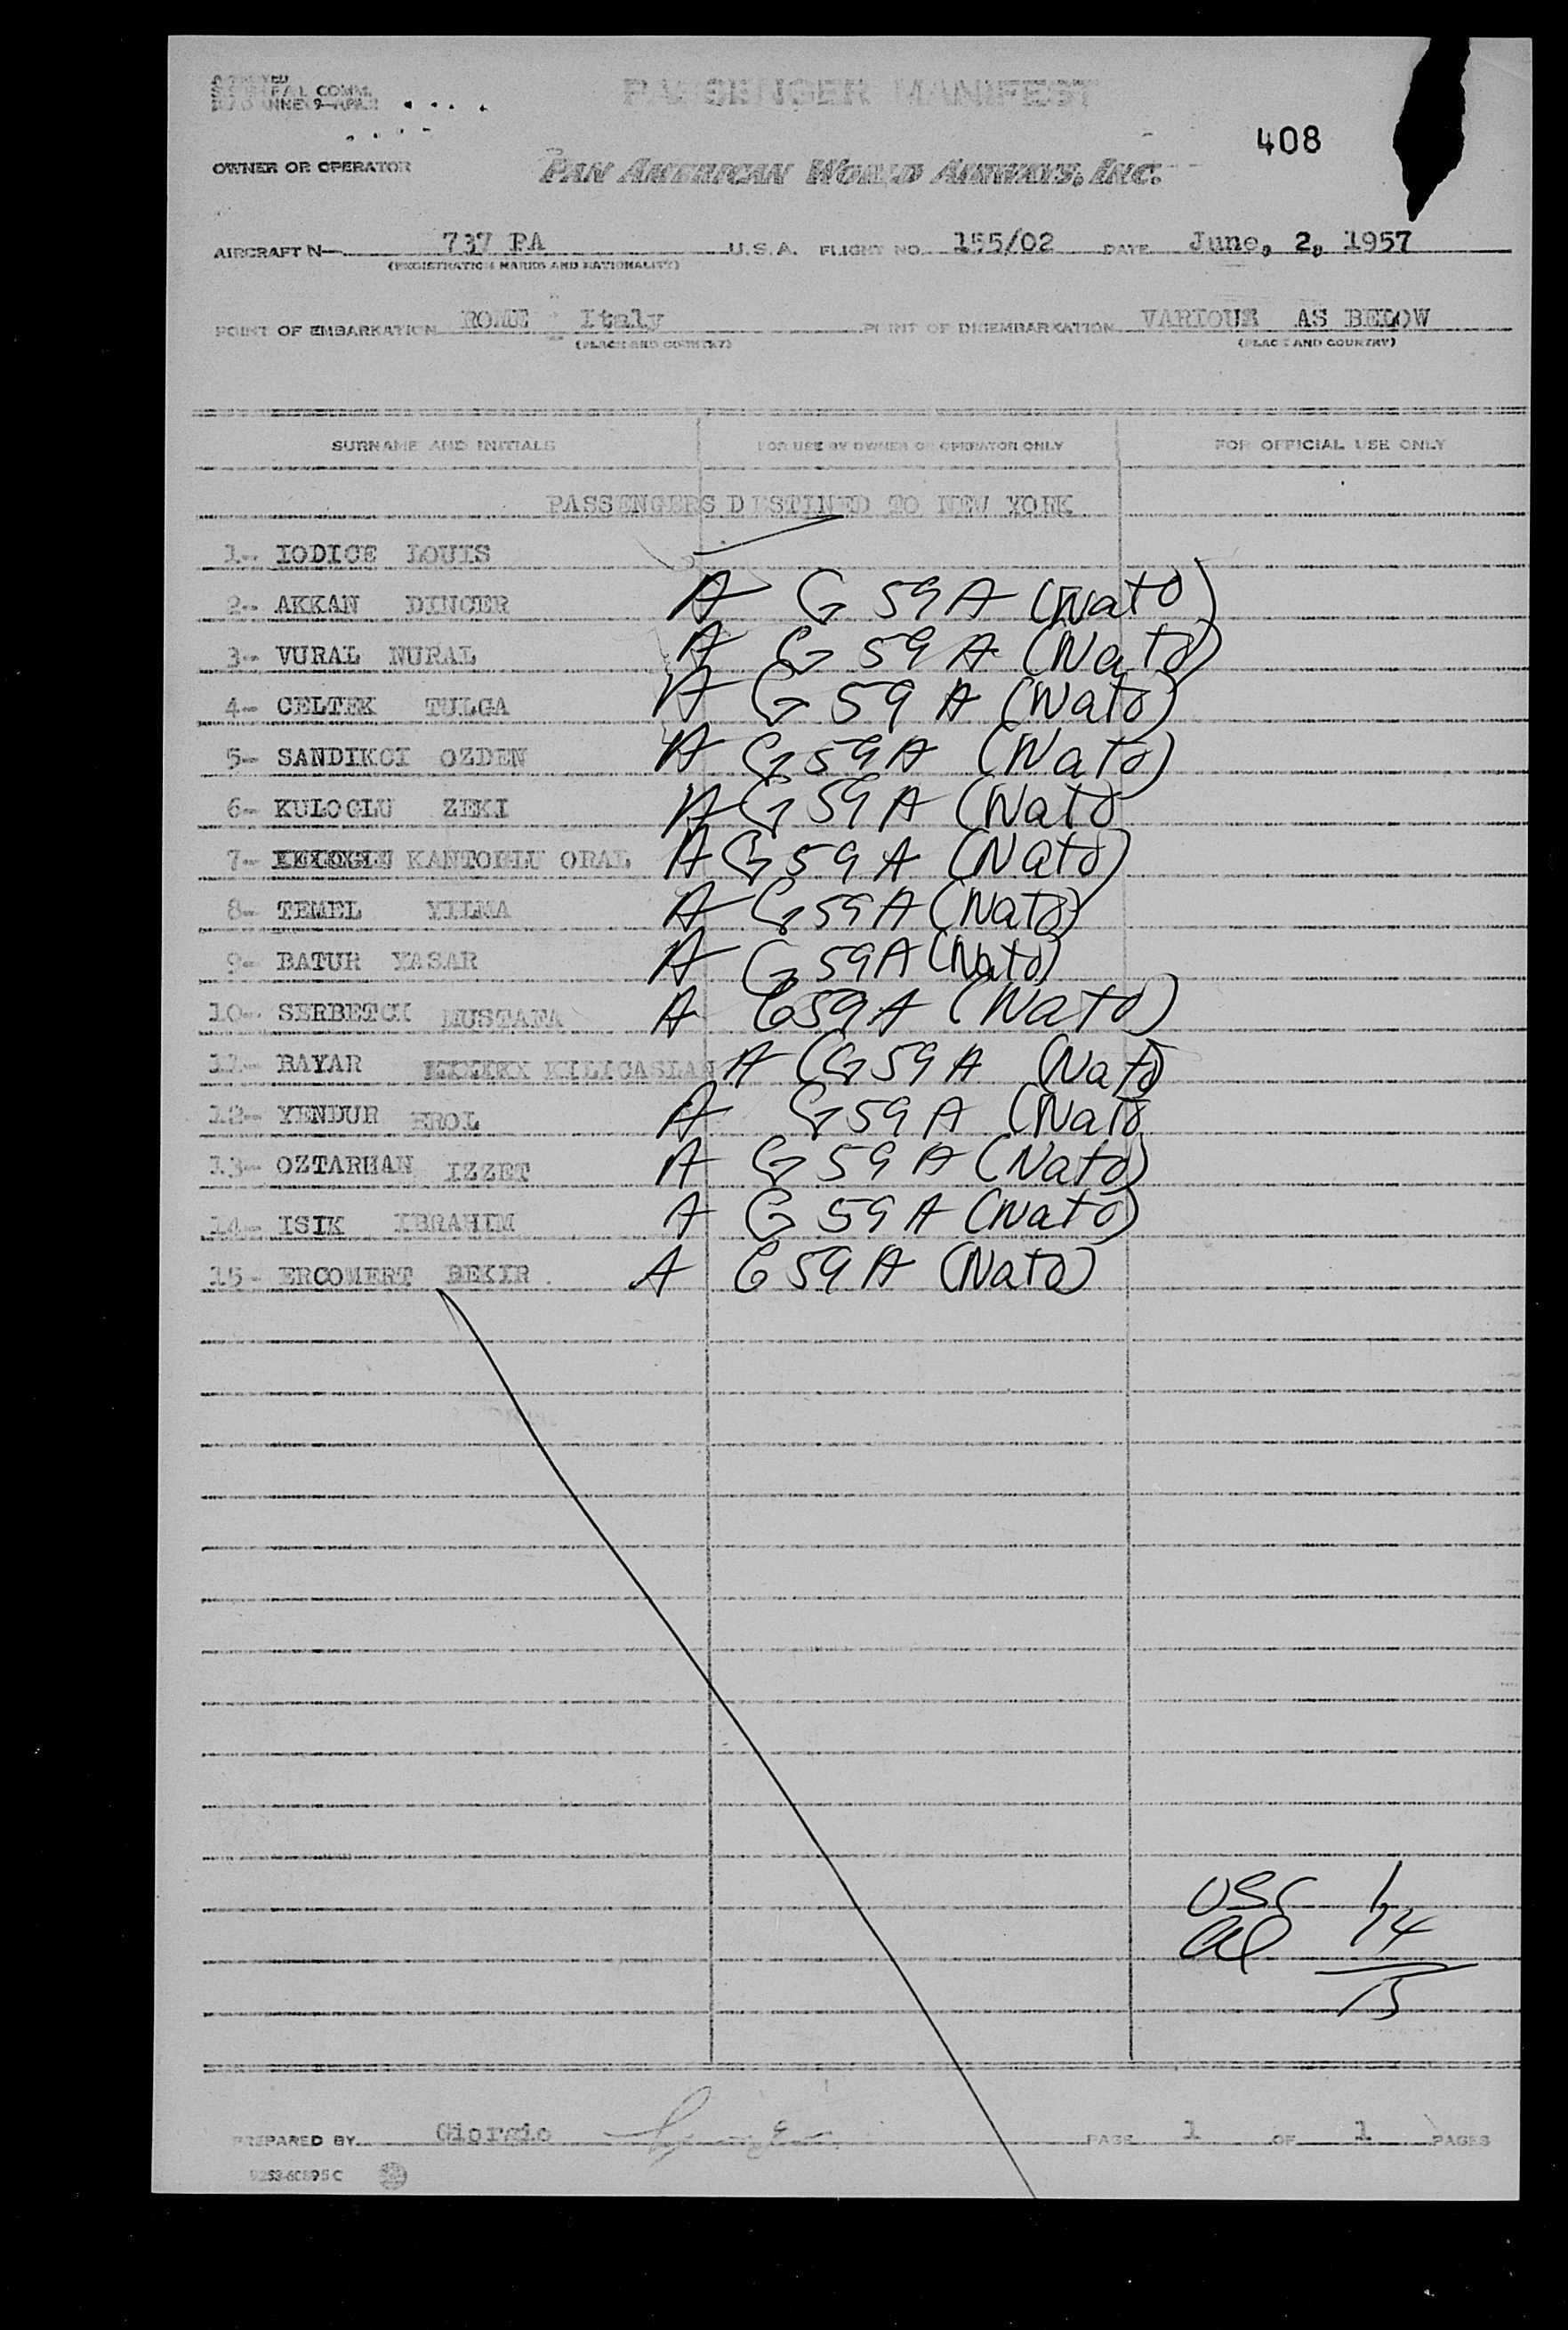 PASSENGER MANIFEST
408
OWNER OR OPERATOR PAN AMERICAN WORLD AIRWAYS, INC.
AIRCRAFT N- 737 PA U.S.A. FLIGHT NO. 155/02 DATE June, 2, 1957
(REGISTRATION MARKS AND NATIONALITY)
POINT OF EMBARKATION ROME Italy POINT OF DISEMBARKATION VARIOUS AS BELOW
(PLACE AND COUNTRY) (PLACE AND COUNTRY)
SURNAME AND INITIALS FOR USE BY OWNER OR OPERATOR ONLY FOR OFFICIAL USE ONLY
PASSENGERS DISTINED TO NEW YORK
1- IODICE LOUIS
2- AKKAN DINCER A G 59 A (Nato)
3- VURAL NURAL A G 59 A (Nato)
4- CELTEK TULGA A G 59 A (Nato)
5- SANDIKCI OZDEN A G 59 A (Nato)
6- KULOGLU ZEKI A G 59 A (Nato
7- KANTOGLU ORAL A G 59 A (Nato)
8- TEMEL YILMA A G 59 A (Nato)
9- BATUR YASAR A G 59 A (Nato)
10- SERBETCK MUSTAFA A G 59 A (Nato)
11- BAYAR KILICASLAN A G 59 A (Nato)
12- YENDUR EROL A G 59 A (Nato
13- OZTARHAN IZZET A G 59 A (Nato)
14- ISIK IBRAHIM A G 59 A (Nato)
15- ERCOMERT BEKIR. A G 59 A (Nato)
USC 1
al 14
15
PREPARED BY Giorgio PAGE 1 OF 1 PAGES